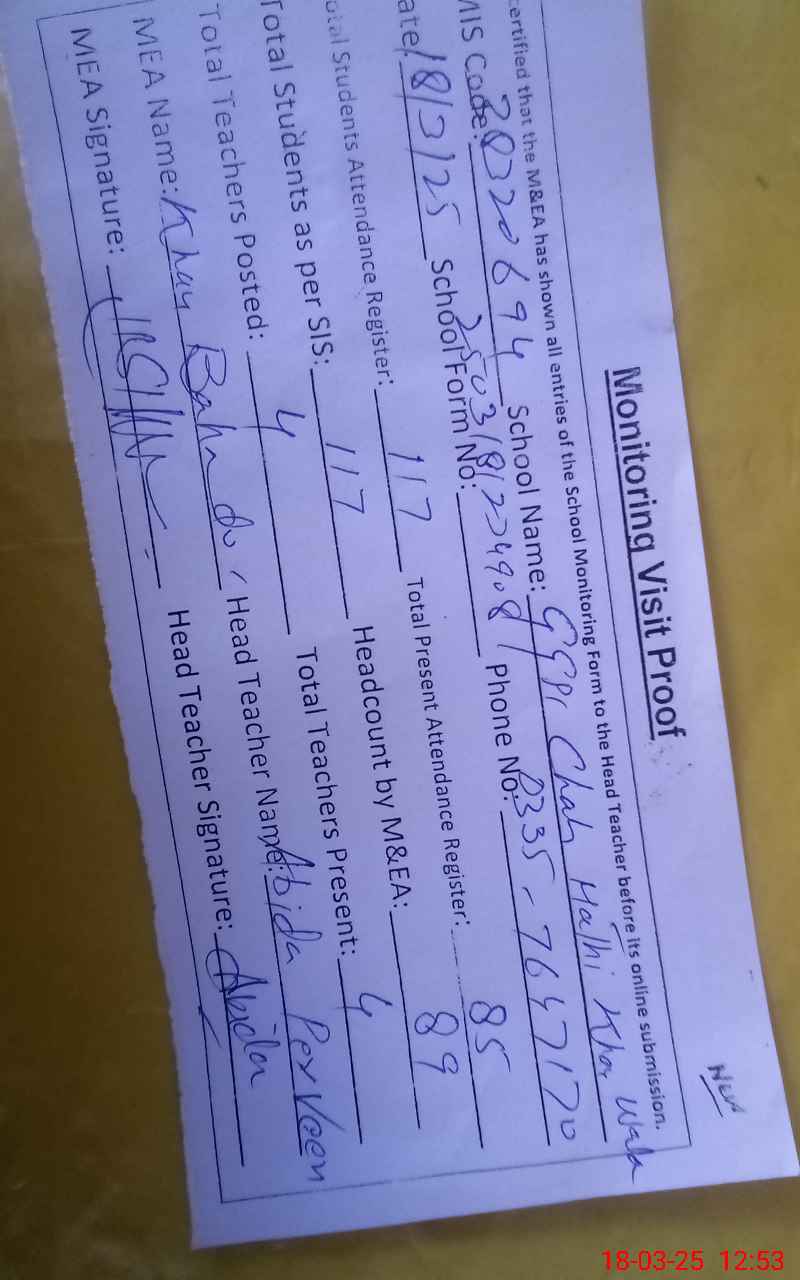 Monitoring Visit Proof
New
certified that the M&EA has shown all entries of the School Monitoring Form to the Head Teacher before its online submission.
MIS Code: 38320694 School Name: GGPS Chah Malhi Khar Wala
ate: 18/3/25 School Form No: 250318/224908 Phone No: 0335-7647170
otal Students Attendance Register: 117 Total Present Attendance Register: 85
Total Students as per SIS: 117 Headcount by M&EA: 89
Total Teachers Posted: 4 Total Teachers Present: 4
MEA Name: Khan Bahadur Head Teacher Name: Abida Perveen
MEA Signature: Head Teacher Signature: Abida
18-03-25 12:53